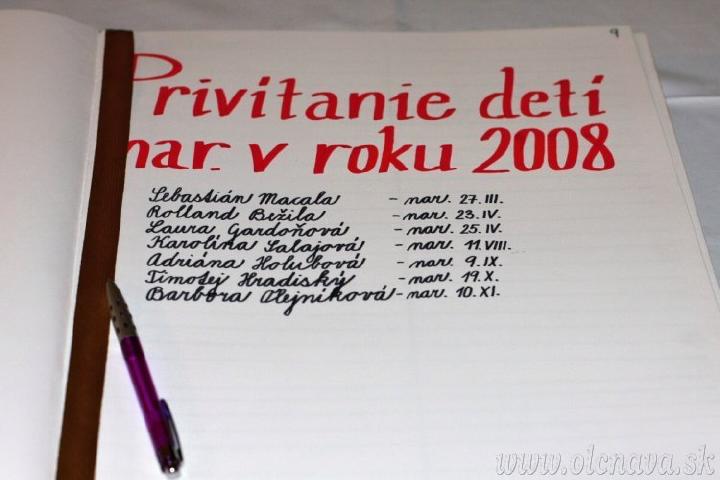 9
Privítanie detí
nar. v roku 2008
Sebastián Macala - nar. 27.III.
Rolland Bežila - nar. 23.IV.
Laura Gardoňová - nar. 25.IV.
Karolína Salajová - nar. 11.VIII.
Adriána Holubová - nar. 9.IX.
Timotej Hradiský - nar. 19.X.
Barbora Olejníková - nar. 10.XI.
www.olcnava.sk